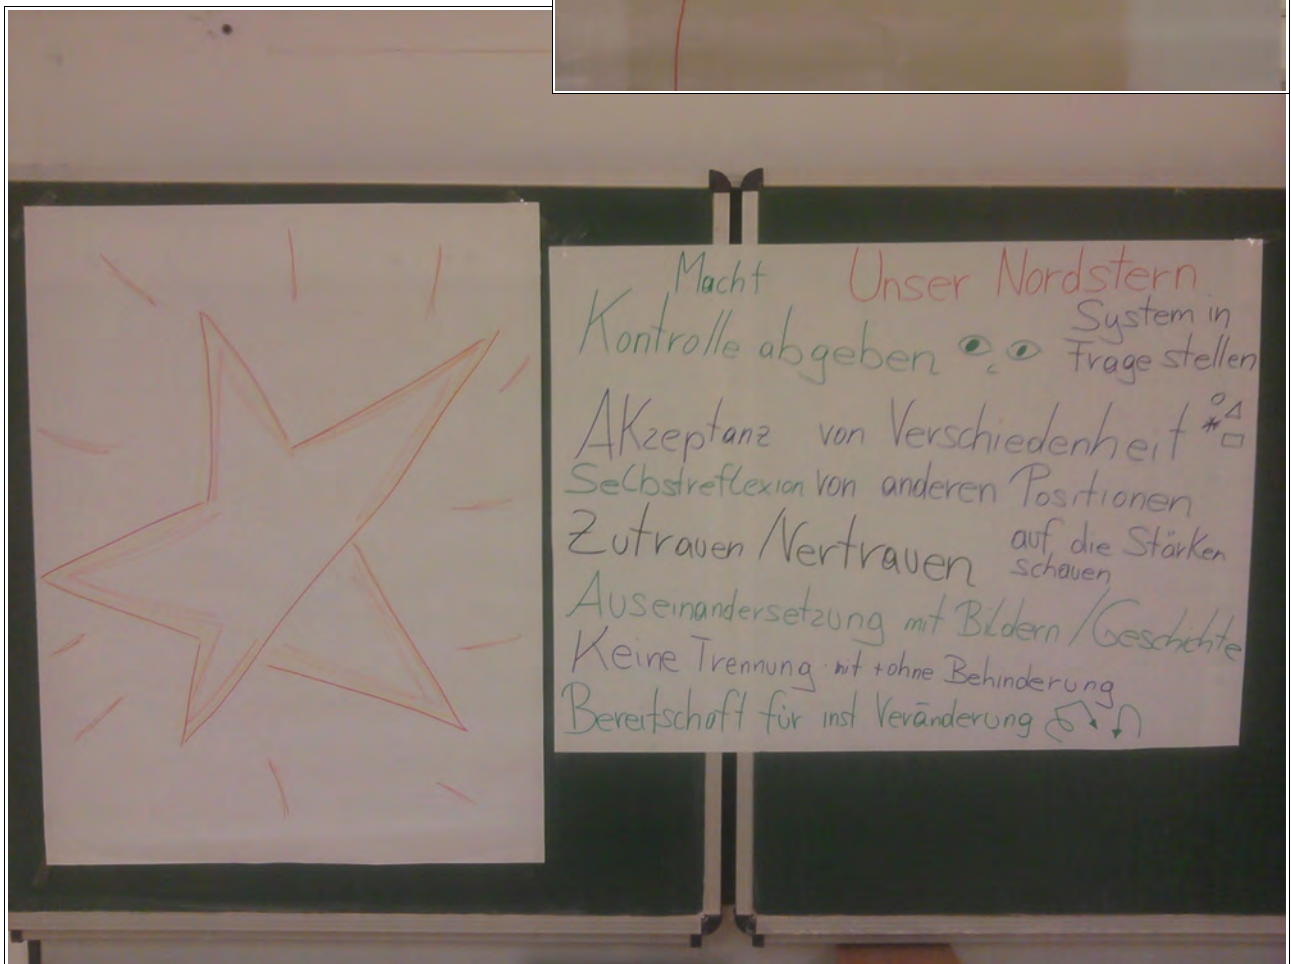 Macht Unser Nordstern
Kontrolle abgeben System in
Frage stellen
Akzeptanz von Verschiedenheit
Selbstreflexion von anderen Positionen
Zutrauen / Vertrauen auf die Stärken
schauen
Auseinandersetzung mit Bildern / Geschichte
Keine Trennung mit + ohne Behinderung
Bereitschaft für inst Veränderung